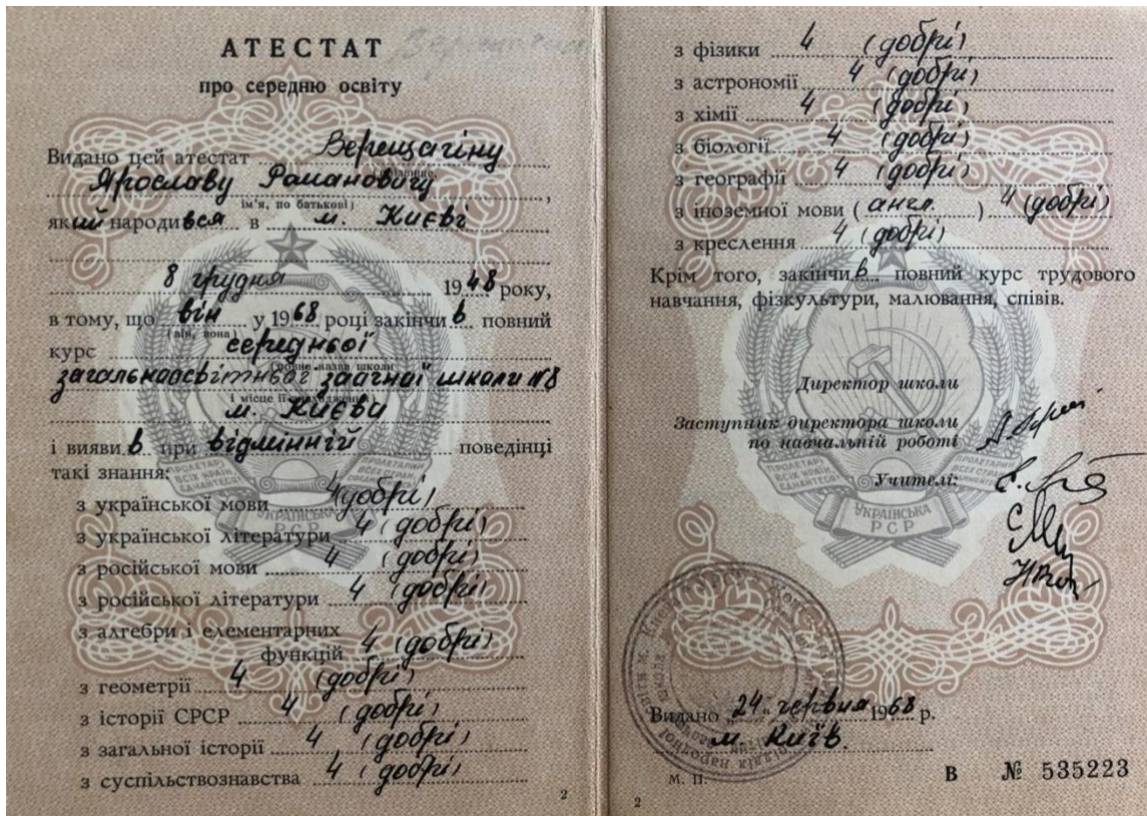 АТЕСТАТ
про середню освіту
Видано цей атестат Верещагіну
Ярославу Романовичу,
ім'я, по батькові
який народився в м. Києві
8 грудня 1948 року,
в тому, що він у 1968 році закінчив повний
(він, вона)
курс середньої
(повна назва школи
загальноосвітньої заочної школи №8
і місце її знаходження)
м. Києва
і виявив при відмінній поведінці
такі знання:
з української мови 4 (добрі)
з української літератури 4 (добрі)
з російської мови 4 (добрі)
з російської літератури 4 (добрі)
з алгебри і елементарних
функцій 4 (добрі)
з геометрії 4 (добрі)
з історії СРСР 4 (добрі)
з загальної історії 4 (добрі)
з суспільствознавства 4 (добрі)
ПРОЛЕТАРІ
ВСІХ КРАЇН
ЄДНАЙТЕСЯ
УКРАЇНСЬКА
РСР
2
з фізики 4 (добрі)
з астрономії 4 (добрі)
з хімії 4 (добрі)
з біології 4 (добрі)
з географії 4 (добрі)
з іноземної мови (англ.) 4 (добрі)
з креслення 4 (добрі)
Крім того, закінчив повний курс трудового
навчання, фізкультури, малювання, співів.
Директор школи
Заступник директора школи
по навчальній роботі
Учителі:
УКРАЇНСЬКА
РСР
Видано „24" червня 1968 р.
м. Київ.
М. П.
В № 535223
2